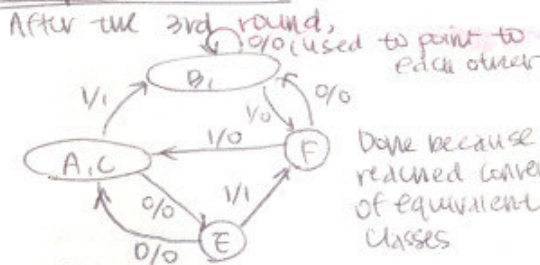 After the 3rd round,
0/0 (used to point to
each other
B,
1/1
1/0
0/0
1/0
F
A,C
0/0
1/1
0/0
E
Done because
reached conver
of equivalent
classes